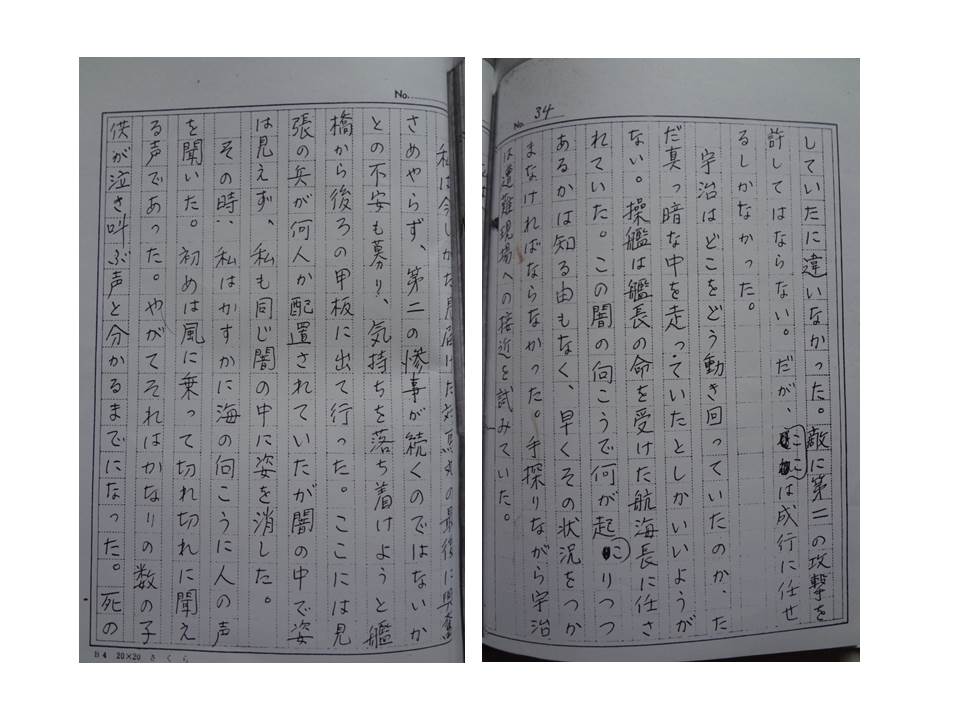 No. 34
していたに違いなかった。敵に第二の攻撃を
許してはならない。だが、ここは成行に任せ
るしかなかった。
宇治はどこをどう動き回っていたのか、た
だ真っ暗な中を走っていたとしかいいようが
ない。操艦は艦長の命を受けた航海長に任さ
れていた。この闇の向こうで何が起こりつつ
あるかは知る由もなく、早くその状況をつか
まなければならなかった。手探りながら宇治
は遭難現場への接近を試みていた。
No.
私は今しがた見届けた対馬丸の最後に興奮
さめやらず、第二の惨事が続くのではないか
との不安も募り、気持ちを落ち着けようと艦
橋から後ろの甲板に出て行った。ここには見
張の兵が何人か配置されていたが闇の中で姿
は見えず、私も同じ闇の中に姿を消した。
その時、私はかすかに海の向こうに人の声
を聞いた。初めは風に乗って切れ切れに聞え
る声であった。やがてそれはかなりの数の子
供が泣き叫ぶ声と分かるまでになった。死の
B4 20×20 さくら